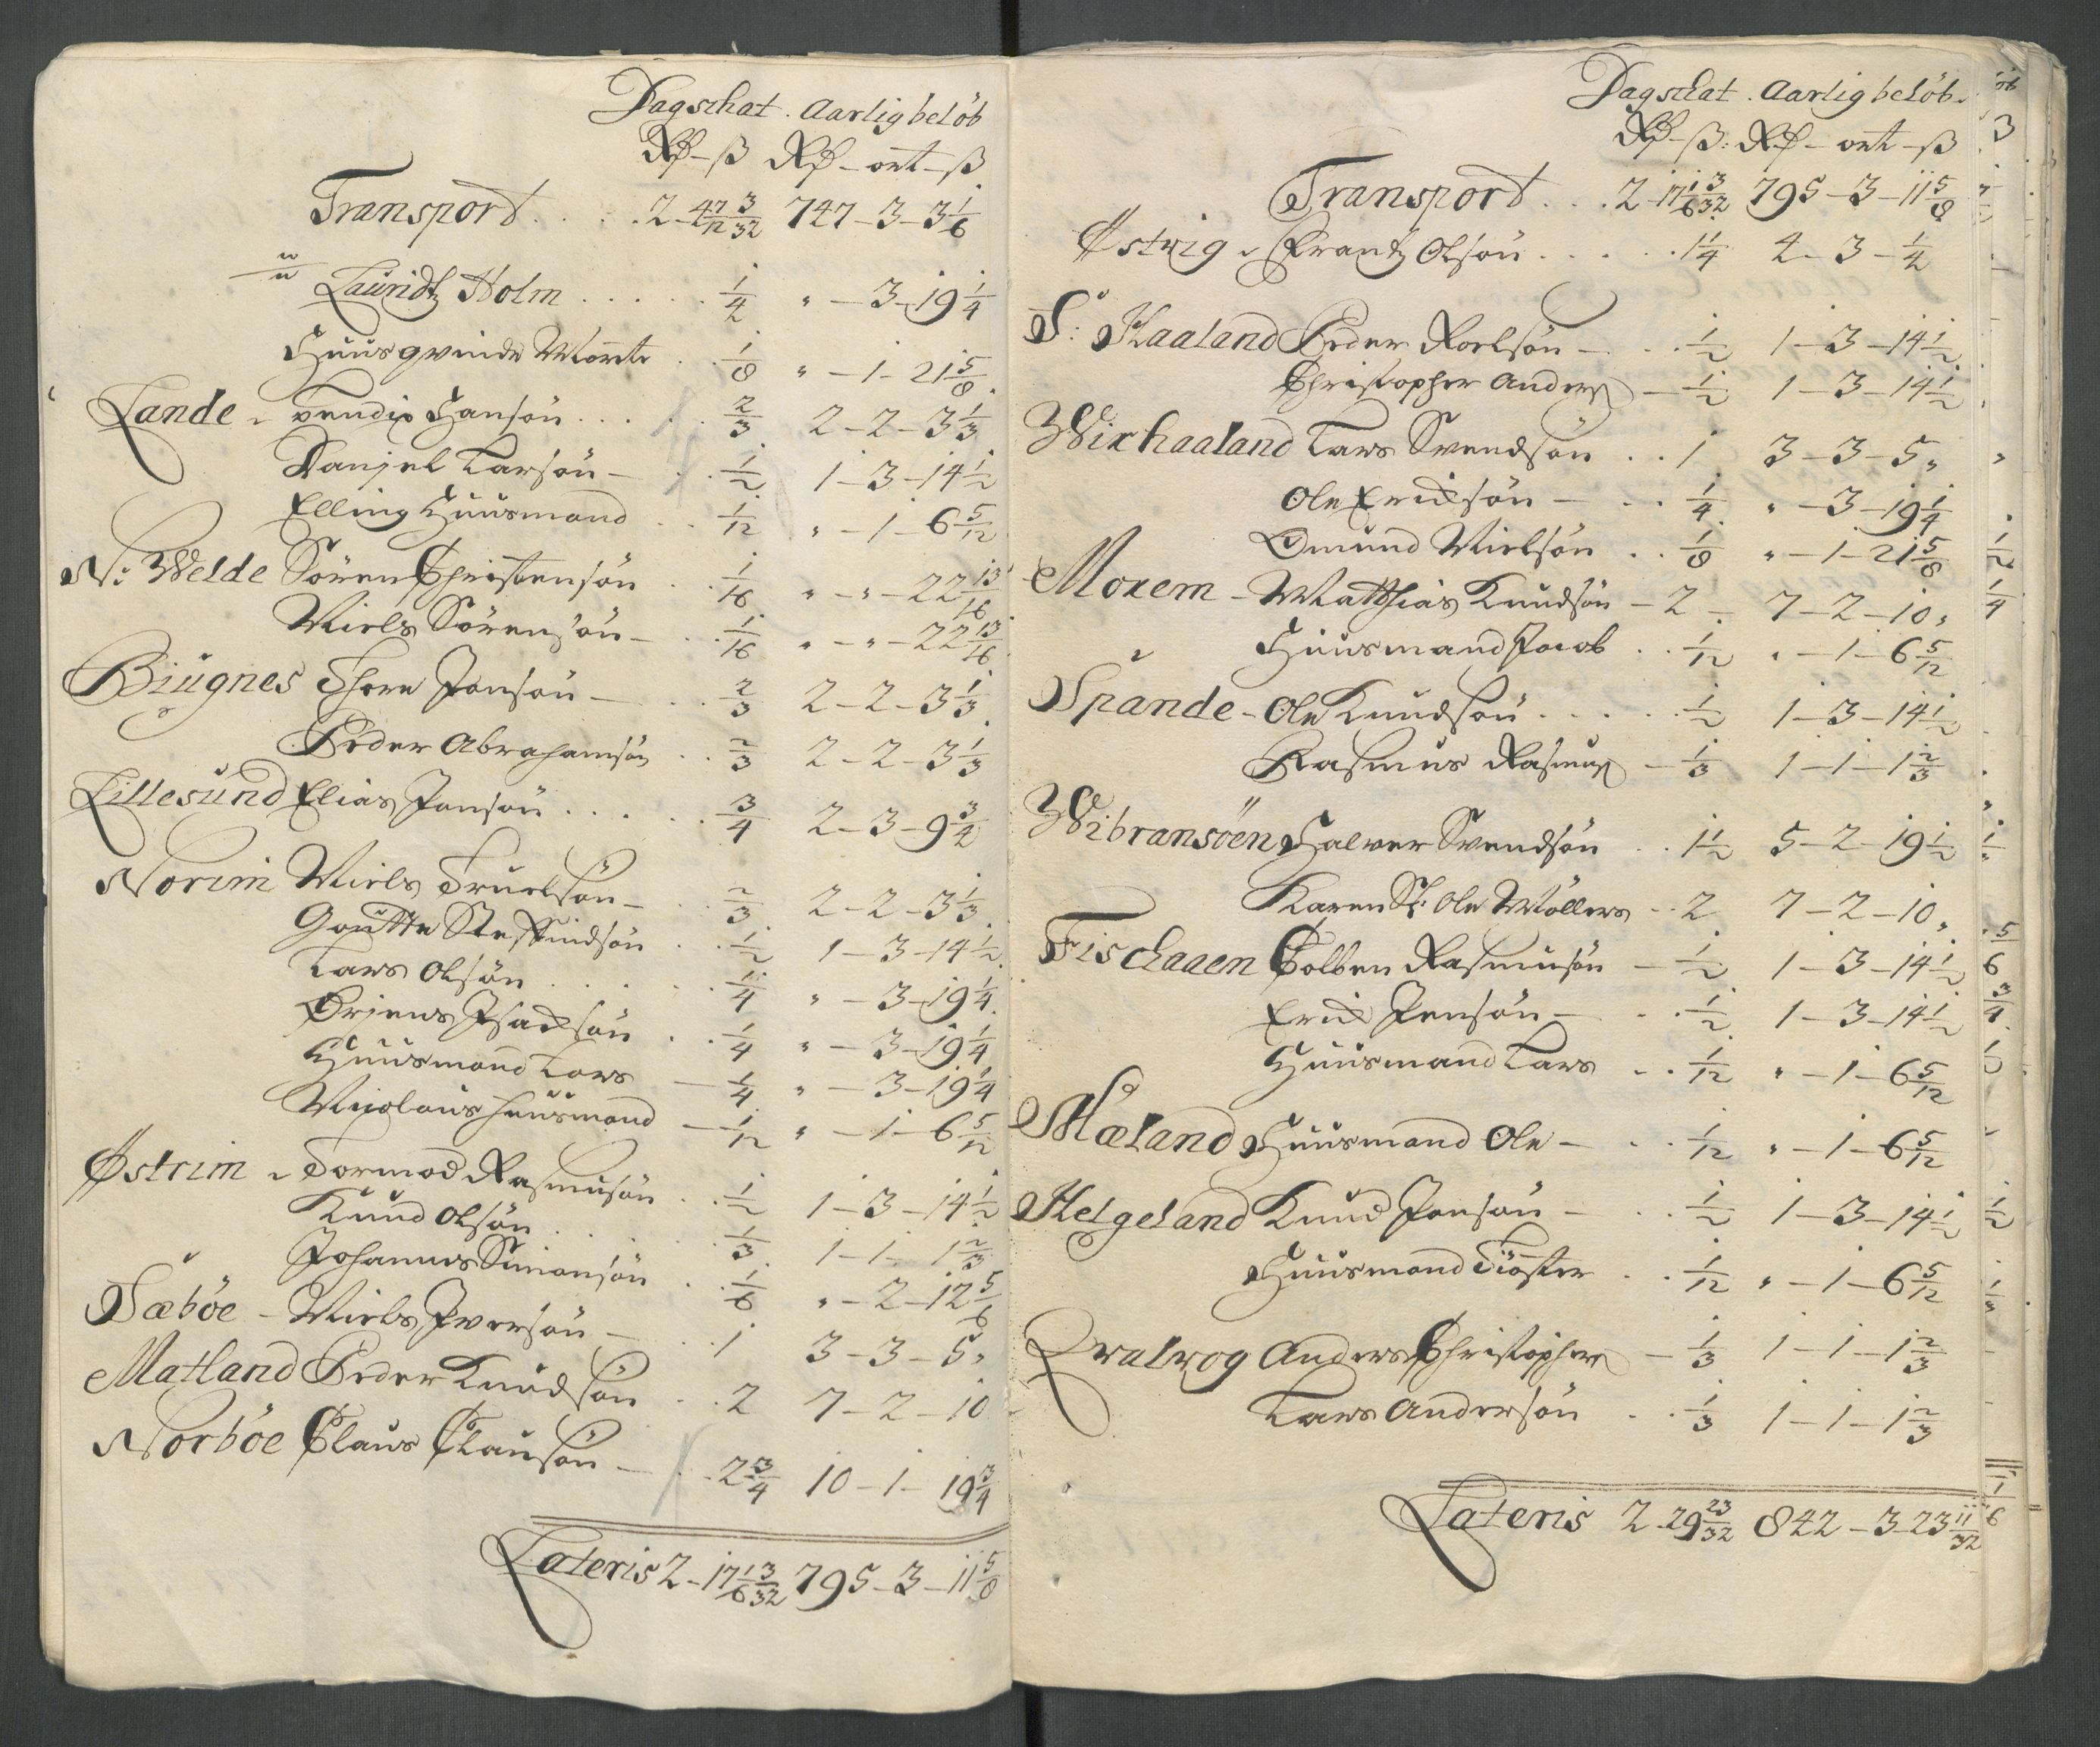 Dagschat . Aarlig belöb
Rd – ß Rd – ort – ß
Transport . . . . . 2 - 4 7/12 3/32 747 – 3 – 3 1/6
Lauridtz Holm . . . . . . 1/4 " – 3 – 19 1/4
Huusqvinde Marite . . 1/8 " – 1 – 21 5/8
Lande - Bendix Hansön . . . . . 2/3 2 – 2 – 3 1/3
Danjel Larsön – . . 1/2 1 – 3 – 14 1/2
Elling Huusmand . . 1/12 " – 1 – 6 5/12
N: Welde Sören Christensön . 1/16 " – " – 22 13/16
Niels Sörensön – . . 1/16 " – " – 22 13/16
Biugnes Thore Jonsön – . . 2/3 2 – 2 – 3 1/3
Peder Abrahamsön . . 2/3 2 – 2 – 3 1/3
Lillesund Elias Jonsön . . . . . 3/4 2 – 3 – 9 3/4
Norim Niels Truelsön – . . 2/3 2 – 2 – 3 1/3
Goutte Steffindsön . . 1/2 1 – 3 – 14 1/2
Lars Olsön . . . . . . 1/4 " – 3 – 19 1/4
Örjens Isacksön . . 1/4 " – 3 – 19 1/4
Huusmand Lars – 1/4 " – 3 – 19 1/4
Nicolaus huusmand – 1/12 " – 1 – 6 5/12
Østrim - Tormod Rasmusön . . 1/2 1 – 3 – 14 1/2
Knud Olsön . . . . . 1/3 1 – 1 – 1 2/3
Johannes Simonsön . . 1/6 " – 2 – 12 5/6
Sæböe - Niels Iversön – . . 1 3 – 3 – 5 "
Matland Peder Knudsön . . 2 7 – 2 – 10
Norböe Claus Clausön – . . 2 3/4 10 – 1 – 19 3/4
Lateris 2 - 17 1/6 3/32 795 – 3 – 11 5/8
Dagschat . Aarlig belöb.
Rd – ß: Rd – ort – ß
Transport . . . 2 - 17 1/6 3/32 795 – 3 – 11 5/8
Østvig - Frantz Olsön . . . . . 1 1/4 4 – 3 – 1/4
S: Haaland Peder Roelsön – . . 1/2 1 – 3 – 14 1/2
Christopher Anders – 1/2 1 – 3 – 14 1/2
Wixhaaland Lars Svendsön . . 1 3 – 3 – 5 "
Ole Ericksön – . . 1/4 " – 3 – 19 1/4
Omund Nielsön . . 1/8 " – 1 – 21 5/8
Moxem - Matthias Knudsön – 2 – 7 – 2 – 10 "
Huusmand Jacob . . 1/12 " – 1 – 6 5/12
Spande - Ole Knudsön . . . . . 1/2 1 – 3 – 14 1/2
Rasmus Rasmus – 1/3 1 – 1 – 1 2/3
Wibransöen Halver Svendsön . . 1 1/2 5 – 2 – 19 1/2
Karen Sl: Ole Möllers . . 2 7 – 2 – 10 "
Fischaaen Colben Rasmusön – 1/2 1 – 3 – 14 1/2
Erick Jensön – . . 1/2 1 – 3 – 14 1/2
Huusmand Lars . . 1/12 " – 1 – 6 5/12
Mæland Huusmand Ole – . . 1/12 " – 1 – 6 5/12
Helgeland Knud Jonsön – . . 1/2 1 – 3 – 14 1/2
Huusmand Töster . . 1/12 " – 1 – 6 5/12
Qvalvog Anders Christophers – 1/3 1 – 1 – 1 2/3
Lars Andersön . . 1/3 1 – 1 – 1 2/3
Lateris 2 - 29 23/32 842 – 3 - 23 11/32